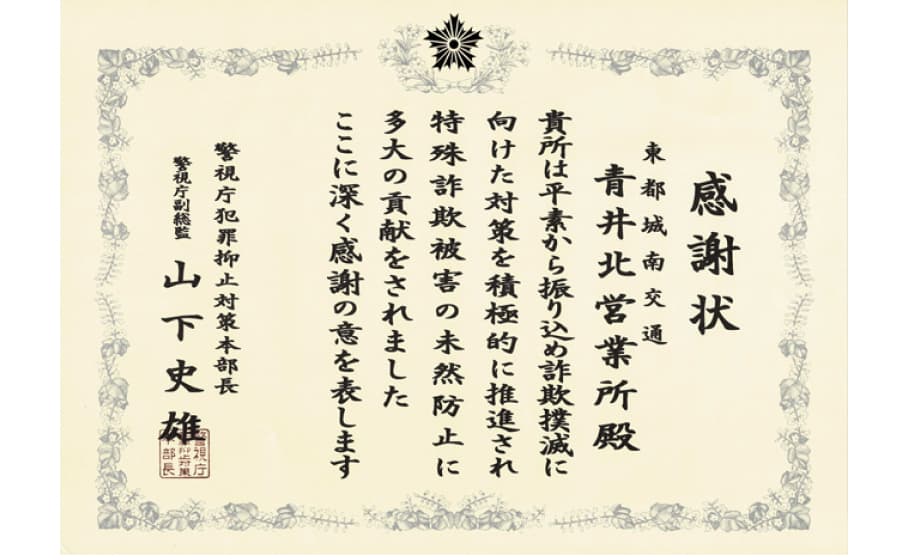 感謝状
東都城南交通
青井北営業所殿
貴所は平素から振り込め詐欺撲滅に
向けた対策を積極的に推進され
特殊詐欺被害の未然防止に
多大の貢献をされました
ここに深く感謝の意を表します
警視庁犯罪抑止対策本部長
警視庁副総監
山下史雄